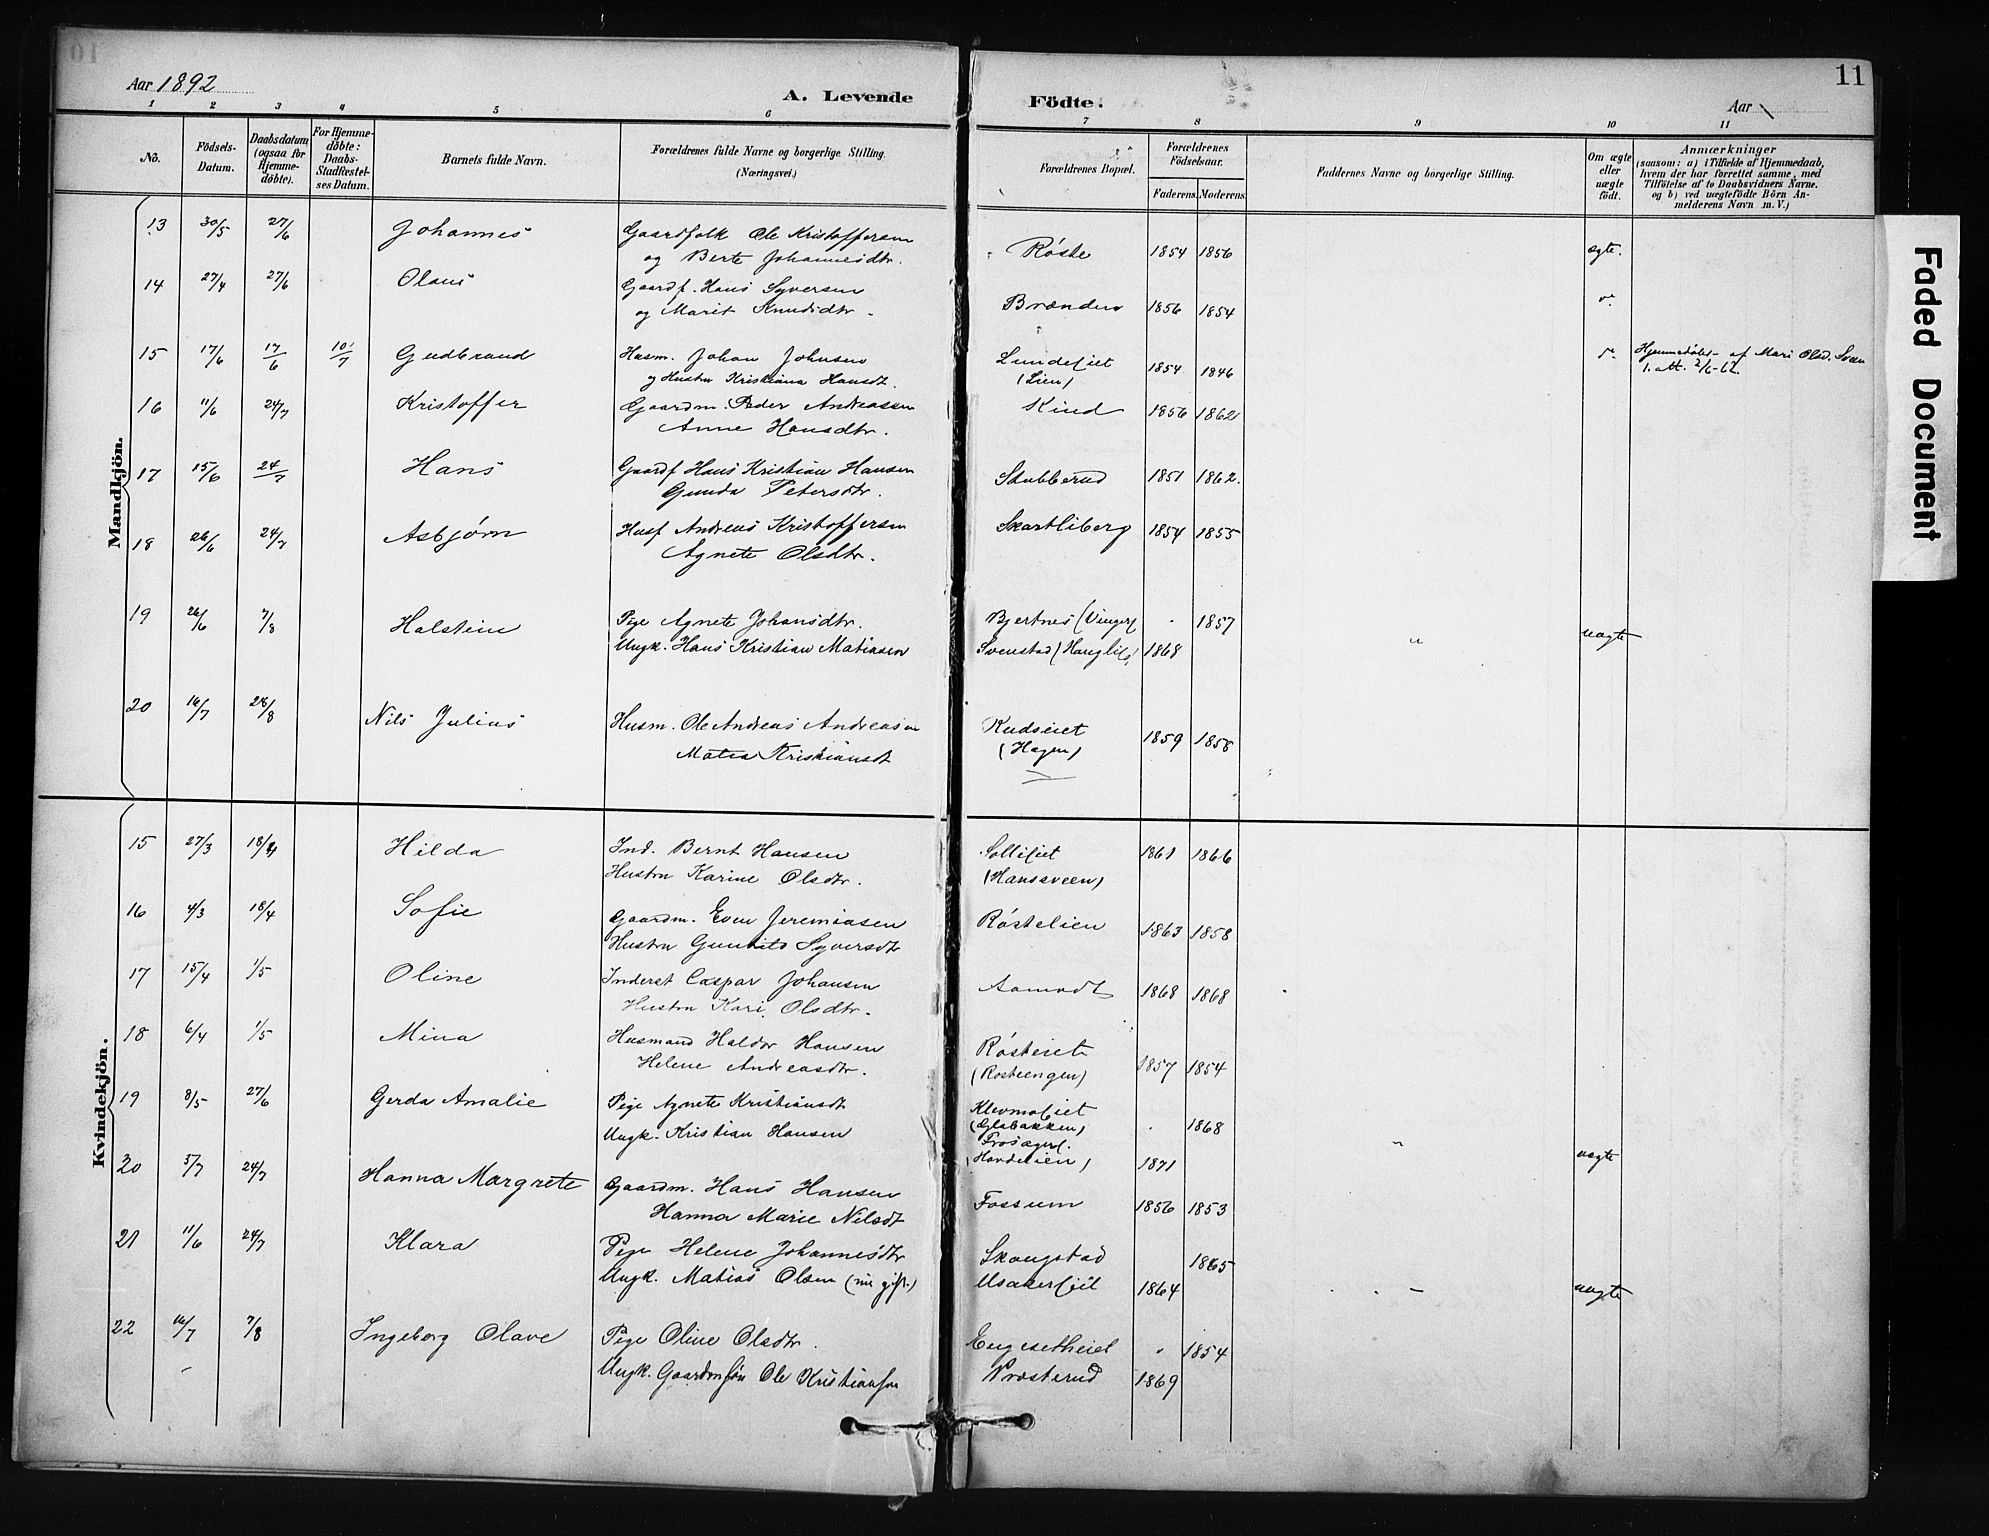 Aar 1892
A. Levende
Födte.
Aar
11
1 2 3 4 5 6 7 8 9 10 11
No.
Födsels-Datum.
Daabsdatum (ogsaa for Hjemme-döbte).
For Hjemme-döbte: Daabs-Stadfæstel-ses Datum.
Barnets fulde Navn.
Forældrenes fulde Navne og borgerlige Stilling. (Næringsvei.)
Forældrenes Bopæl.
Forældrenes Födselsaar.
Faderens. Moderens.
Faddernes Navne og borgerlige Stilling.
Om ægte eller uægte födt.
Anmærkninger
(saasom: a) i Tilfælde af Hjemmedaab,
hvem der har forrettet samme, med
Tilföielse af to Daabsvidners Navne.
og b) ved uægtefödte Börn An-
melderens Navn m. V.)
Faded Document
Mandkjön.
13 30/5 27/6 Johannes Gaardfolk Ole Kristoffersen Røste 1854 1856 ægte.
og Berte Johannesdtr.
14 27/4 27/6 Olaus Gaardf. Hans Syversen Brænden 1856 1854
og Marit Knudsdtr.
15 17/6 17/6 10/7 Gudbrand Husm. Johan Johnsen Lundeeiet 1854 1846 Hjemmedøbt af Mari Olsd. Sveen
og Hustru Kristiana Hansdt. (Lien)
16 11/6 24/7 Kristoffer Gaardm. Peder Andreassen Kind 1856 1862
Anne Hansdtr.
17 15/6 24/7 Hans Gaardf Hans Kristian Hansen Stubberud 1851 1862.
Gunda Petersdtr.
18 26/6 24/7 Asbjørn Husf Andreas Kristoffersen Skartliberg 1854 1855
Agnete Olsdtr.
19 26/6 7/8 Halstein Pige Agnete Johansdtr. Bjertnes (Vinger) 1857
Ungk. Hans Kristian Matiasen Svenstad (Hauglie) 1868 " uægte
20 16/7 28/8 Nils Julius Husm. Ole Andreas Andreasen Rudseiet 1859 1858
Matea Kristiansdt (Hagen)
Kvindekjön.
15 27/3 18/4 Hilda Ind. Bernt Hansen Sollieiet 1861 1866
Hustru Karine Olsdtr. (Hansaveen)
16 4/3 18/4 Sofie Gaardm. Even Jeremiasen Røstelien 1863 1858
Hustru Gunhild Syversdt
17 15/4 1/5 Oline Inderst Caspar Johansen Aamodt 1868 1868
Hustru Kari Olsdtr.
18 6/4 1/5 Mina Husmand Haldor Hansen Røsteiet 1857 1854
Helene Andreasdtr. (Rosteengen)
19 8/5 27/6 Gerda Amalie Pige Agnete Kristiansdt Klevmoeiet (Glabakken) 1868
Ungk. Kristian Hansen (Hovdelien) 1871 " uægte
20 5/7 24/7 Hanna Margrete Gaardm. Hans Hansen Fossum 1856 1853
Hanna Marie Nilsdt
21 11/6 24/7 Klara Pige Helene Johannesdtr Skougstad 1865
Ungk. Matias Olsen (nu gift.) 1864 uægte
22 16/7 7/8 Ingeborg Olave Pige Oline Olsdtr. Engesetheiet 1854
Ungk. Gaardmsøn Ole Kristiansen Præsterud 1869